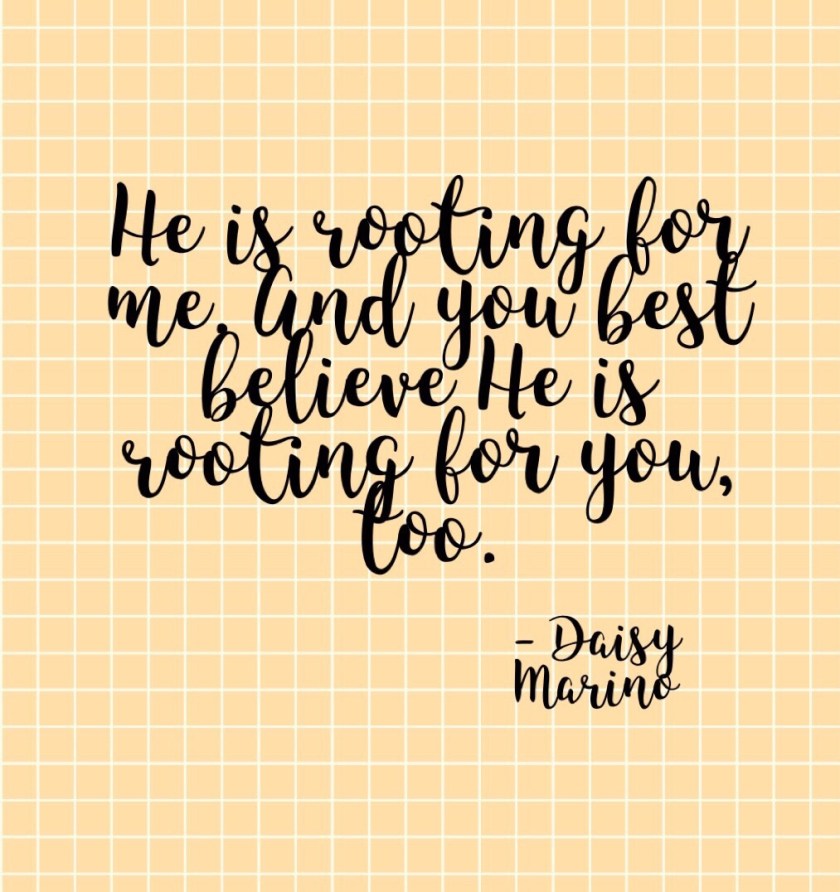 He is rooting for
me. And you best
believe He is
rooting for you,
too.
- Daisy
Marino